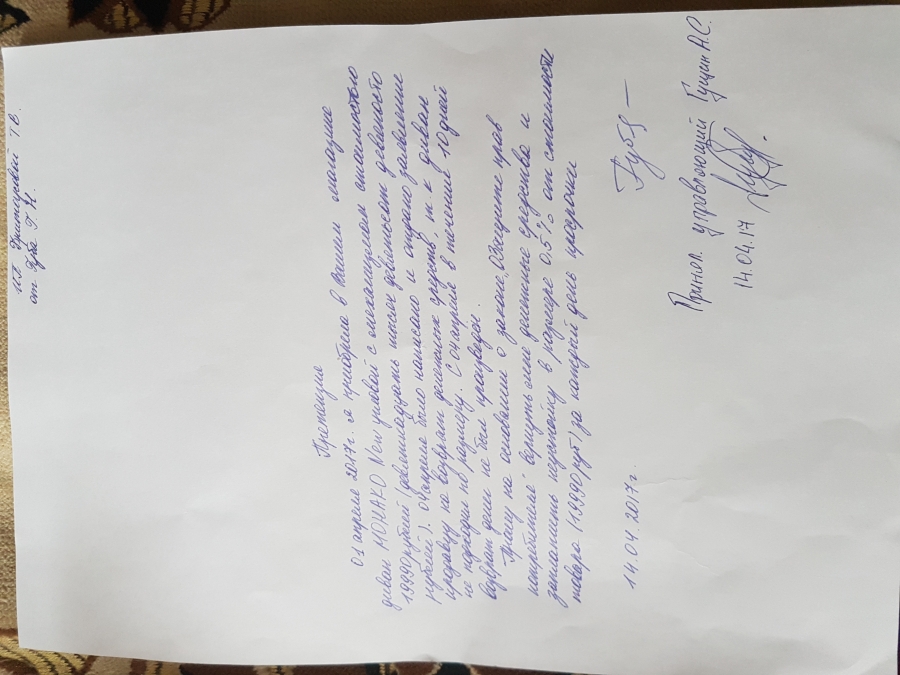 ИП Григорьевой Т.В.
от Зуба Г.Н.
Претензия
01 апреля 2017г. я приобрела в Вашем магазине
диван МОНАКО New угловой с механизмом стоимостью
19990 рублей (девятнадцать тысяч девятьсот девяносто
рублей). 04 апреля было написано и отдано заявление
продавцу на возврат денежных средств, т.к диван
не подходил по размеру. С 04 апреля в течении 10 дней
возврат денег не был произведен.
Прошу на основании о закона „О Защите прав
потребителей" вернуть мне денежные средства и
заплатить неустойку в размере 0.5% от стоимости
товара (19990 руб) за каждый день просрочки
14.04.2017г.
Принял управляющий Гущин А.С.
14.04.17